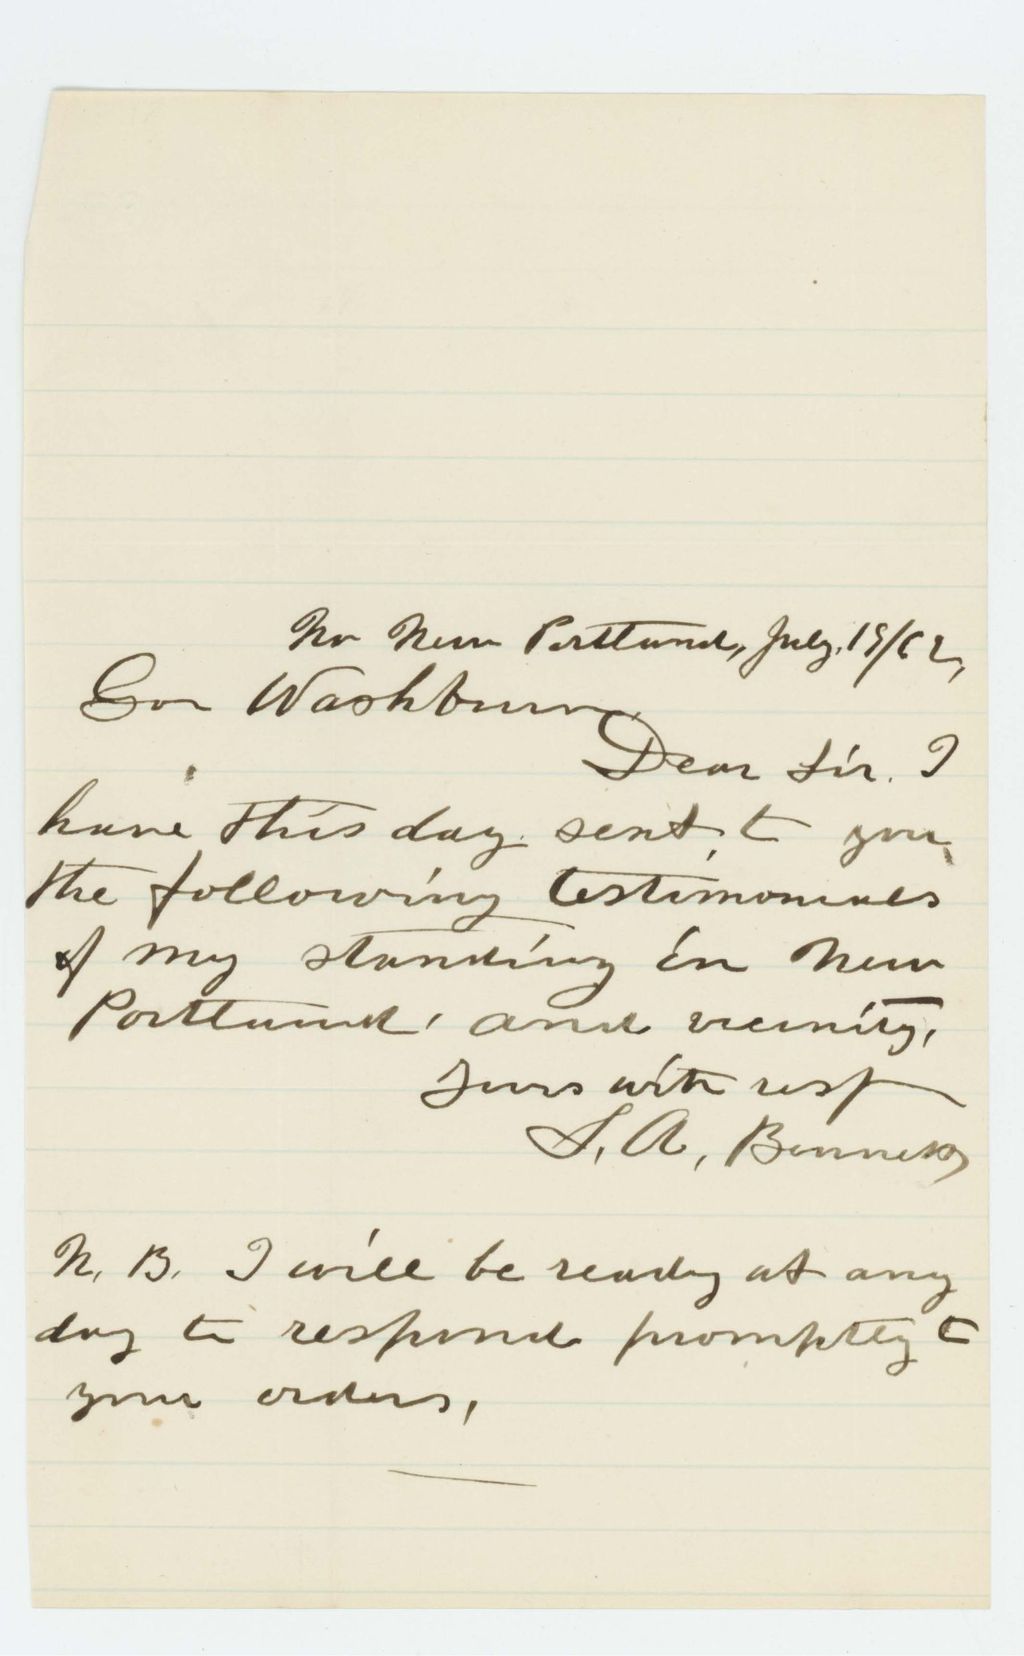 No New Portland, July, 19/62,
Gov Washburn,
Dear Sir. I
have this day sent to you
the following testimonials
of my standing in New
Portland, and vicinity,
Yours with resp
S, A, Bennett
N, B, I will be ready at any
day to respond promptly to
your orders,